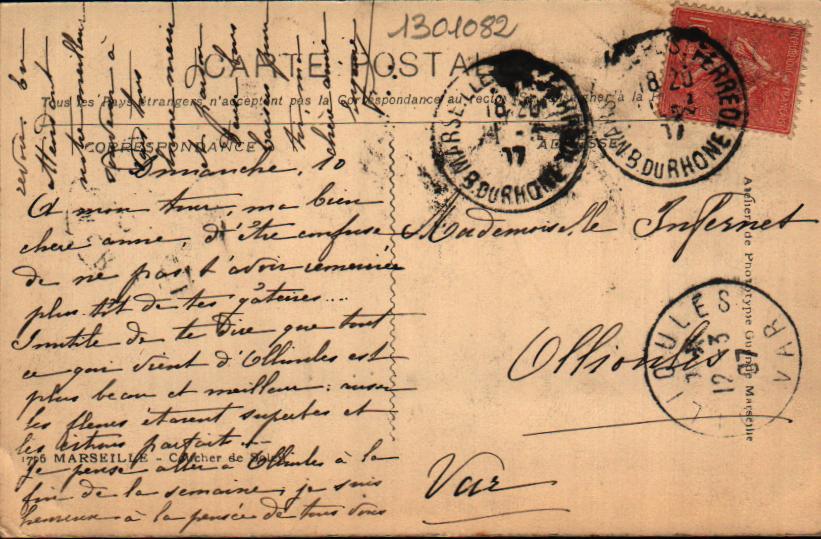 1301082
CARTE POSTALE
Tous les Pays étrangers n'acceptent pas la Correspondance au recto
CORRESPONDANCE
ADRESSE
MARSEILLE
18 20
17
B. DU RHONE
18 20
17
B. DU RHONE
Dimanche, 10
A mon tour, ma bien
chère amie, d'être confuse
de ne pas t'avoir remerciée
plus tôt de tes gâteries...
Inutile de te dire que tout
ce qui vient d'Ollioules est
plus beau et meilleur: aussi
les fleurs étaient superbes et
les citrons parfaits...
1706 MARSEILLE - Coucher de Soleil
Je pense aller à Ollioules à la
fin de la semaine, je suis
heureux à la pensée de tous vous
revoir. En
attendant
chère amie
Mademoiselle Infernet
Ollioules
Var
OLLIOULES
12 - 3
07
VAR
Ateliers de Phototypie Guende Marseille